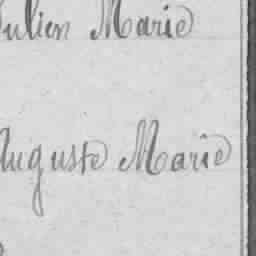 Julien Marie
Auguste Marie